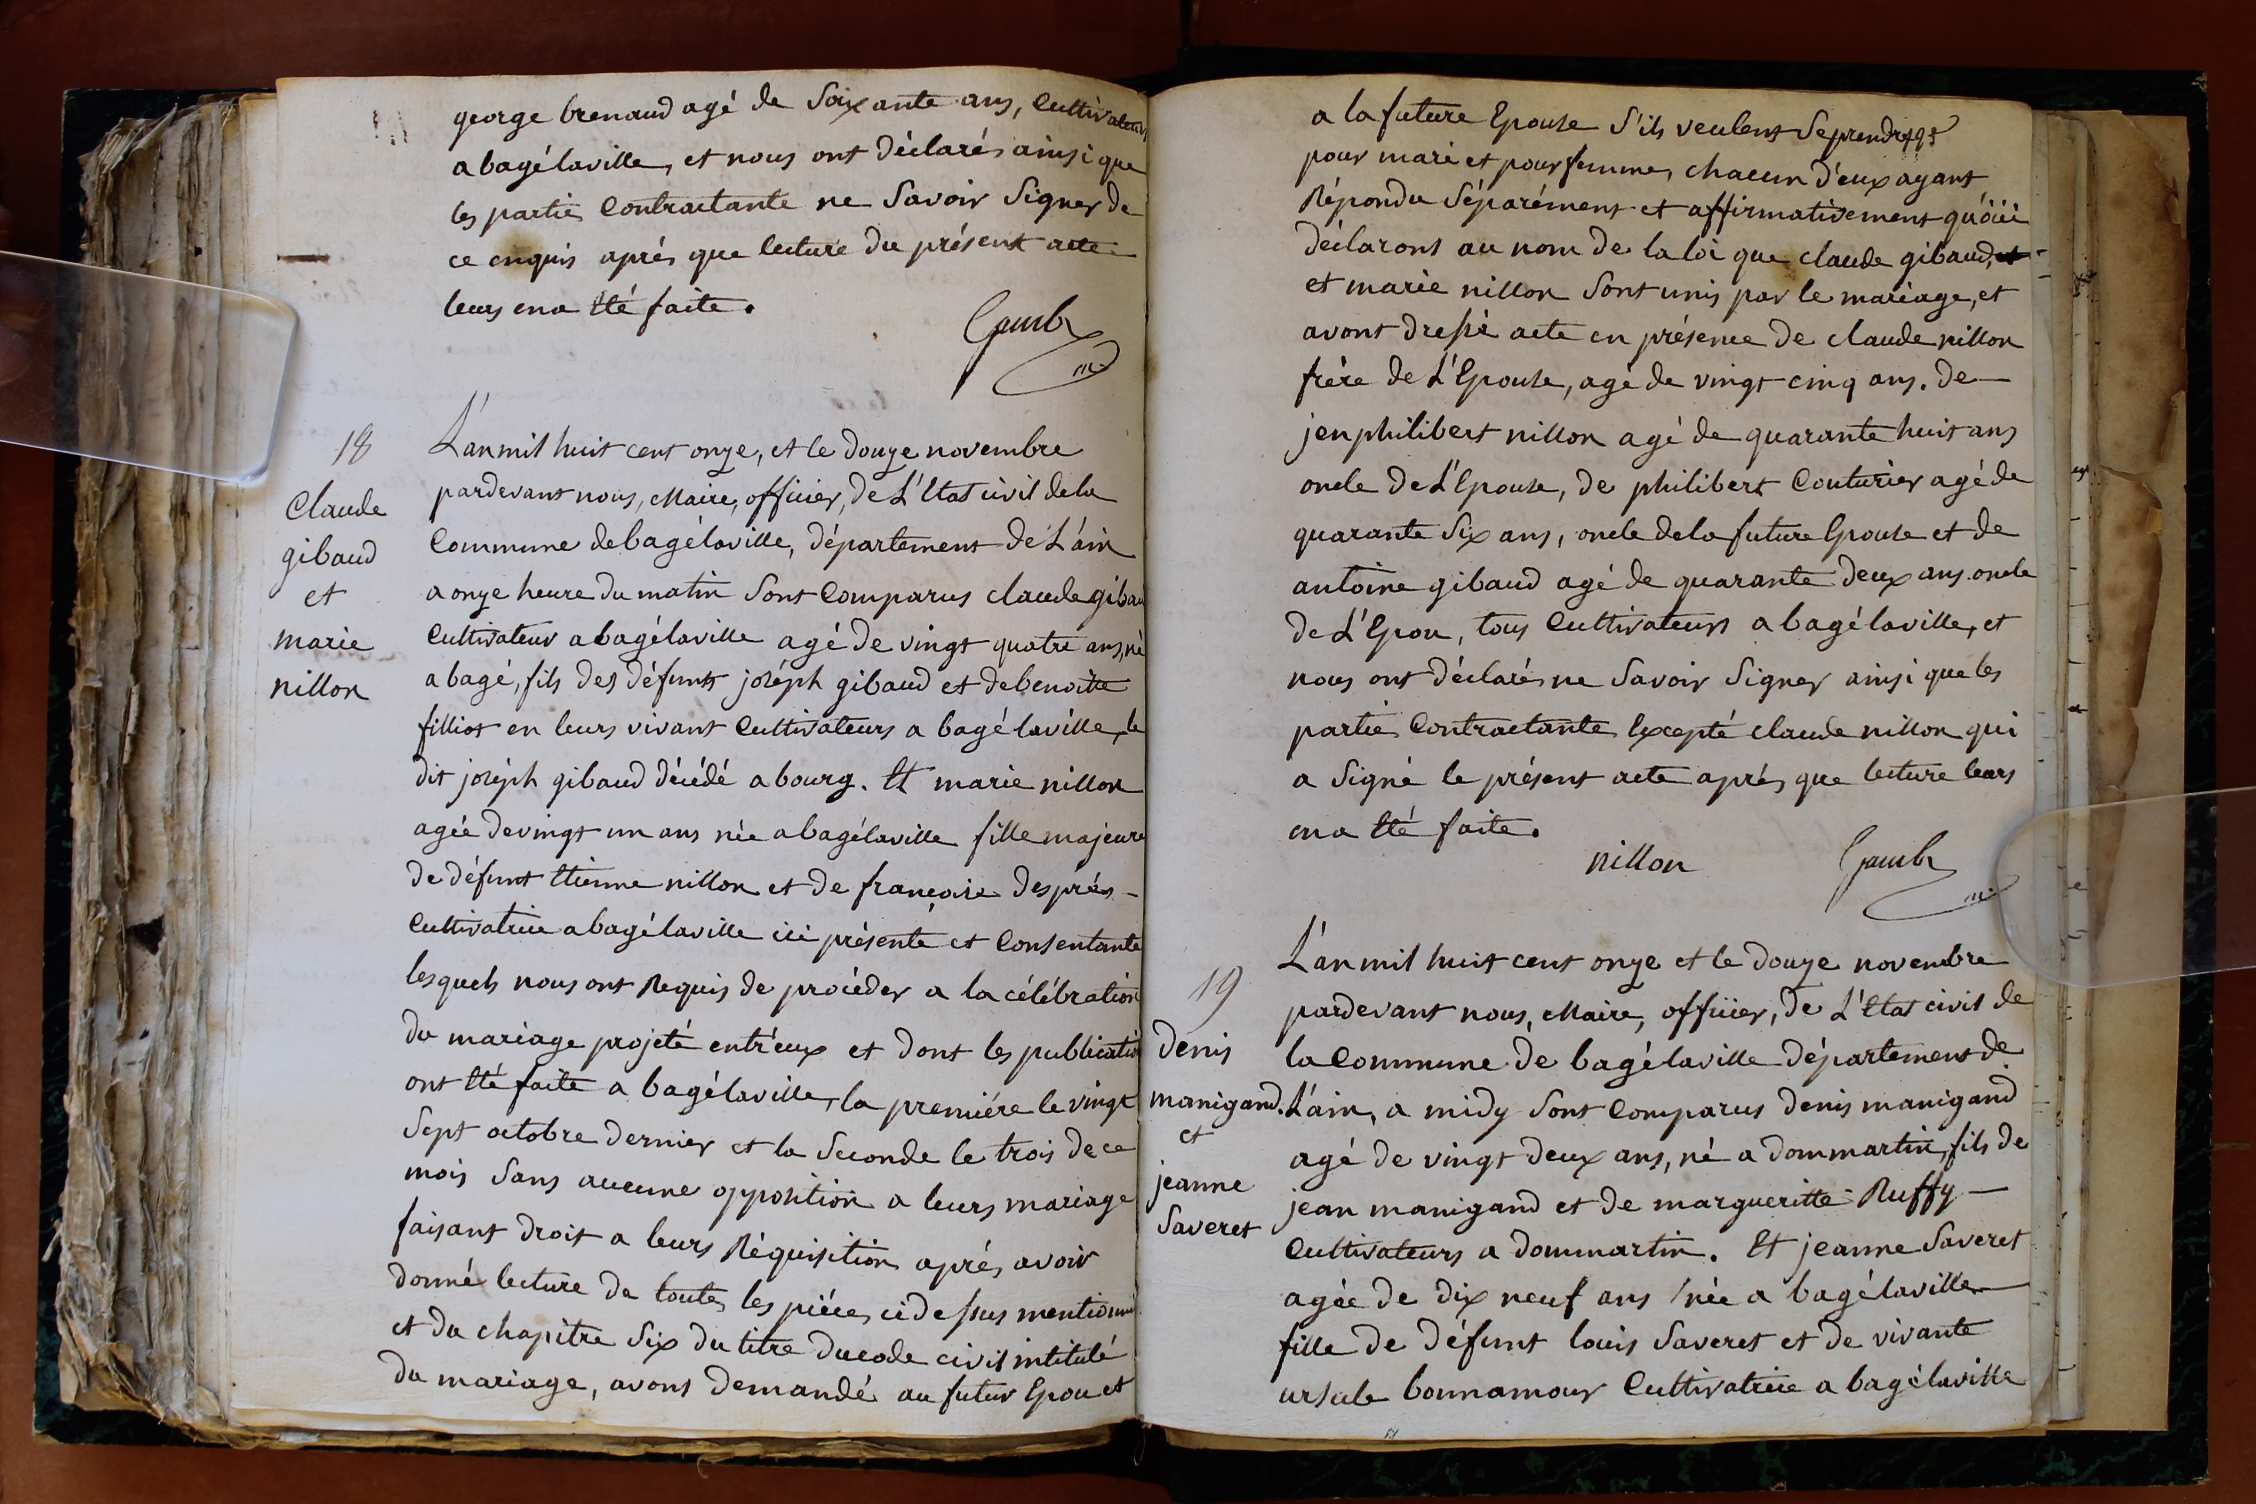 george brenaud agé de Soixante ans, Cultivateurs
a bagélaville, et nous ont déclarés ainsi que
les partie Contractante ne Savoir Signer de
ce enquis aprés que lecture du présent acte
leurs en a Eté faite.
18
Claude
gibaud
et
marie
nillon
L'an mil huit cent onze, et le douze novembre
pardevant nous, Maire, officier, de L'Etat civil de la
Commune de bagélaville, département de L'ain
a onze heure du matin Sont Comparus claude gibau
Cultivateur a bagélaville agé de vingt quatre ans, né
a bagé, fils des défunts joséph gibaud et de benoitte
filliot en leurs vivant Cultivateurs a bagé laville, le
dit joséph gibaud décédé a bourg. Et marie nillon
agée de vingt un ans née a bagélaville fille majeure
de défunt Etienne nillon et de françoise després
Cultivatrice a bagélaville ici présente et Consentante
lesquels nous ont Requis de procéder a la célébration
du mariage projeté entr'eux et dont les publication
ont Eté faite a bagélaville, la premiére le vingt
Sept octobre dernier et la Seconde le trois de ce
mois Sans aucune opposition a leurs mariage
faisant droit a leurs Réquisition aprés avoir
donné lecture de toutes les piéces cidessus mentionné
et du chapitre Six du titre du code civil intitulé
du mariage, avons demandé au futur Epou et
a la future Epouse S'ils veulent Se prendre
pour mari et pour femme, chacun d'eux ayant
Répondu Séparément et affirmativement qu'oüi
déclarons au nom de la loi que claude gibaud, et
et marie nillon Sont unis par le mariage, et
avont dressé acte en présence de claude nillon
frére de L'Epouse, agé de vingt cinq ans. de
jen philibert nillon agé de quarante huit ans
oncle de L'Epouse, de philibert Couturier agé de
quarante Six ans, oncle de la future Epouse et de
antoine gibaud agé de quarante deux ans oncle
de L'Epou, tous Cultivateurs a bagélaville, et
nous ont déclarés ne Savoir Signer ainsi que les
partie Contractante Excepté claude nillon qui
a Signé le présent acte aprés que lecture leurs
en a Eté faite.
nillon
19
denis
manigand.
et
jeanne
Saveret
L'an mil huit cent onze et le douze novembre
pardevant nous, Maire, officier, de L'Etat civil de
la Commune de bagélaville département de
L'ain, a midy Sont Comparus denis manigand
agé de vingt deux ans, né a dommartin, fils de
jean manigand et de margueritte Ruffy
Cultivateurs a dommartin. Et jeanne Saveret
agée de dix neuf ans née a bagélaville
fille de défunt louis Saveret et de vivante
ursule bonnamour Cultivatrice a bagélaville